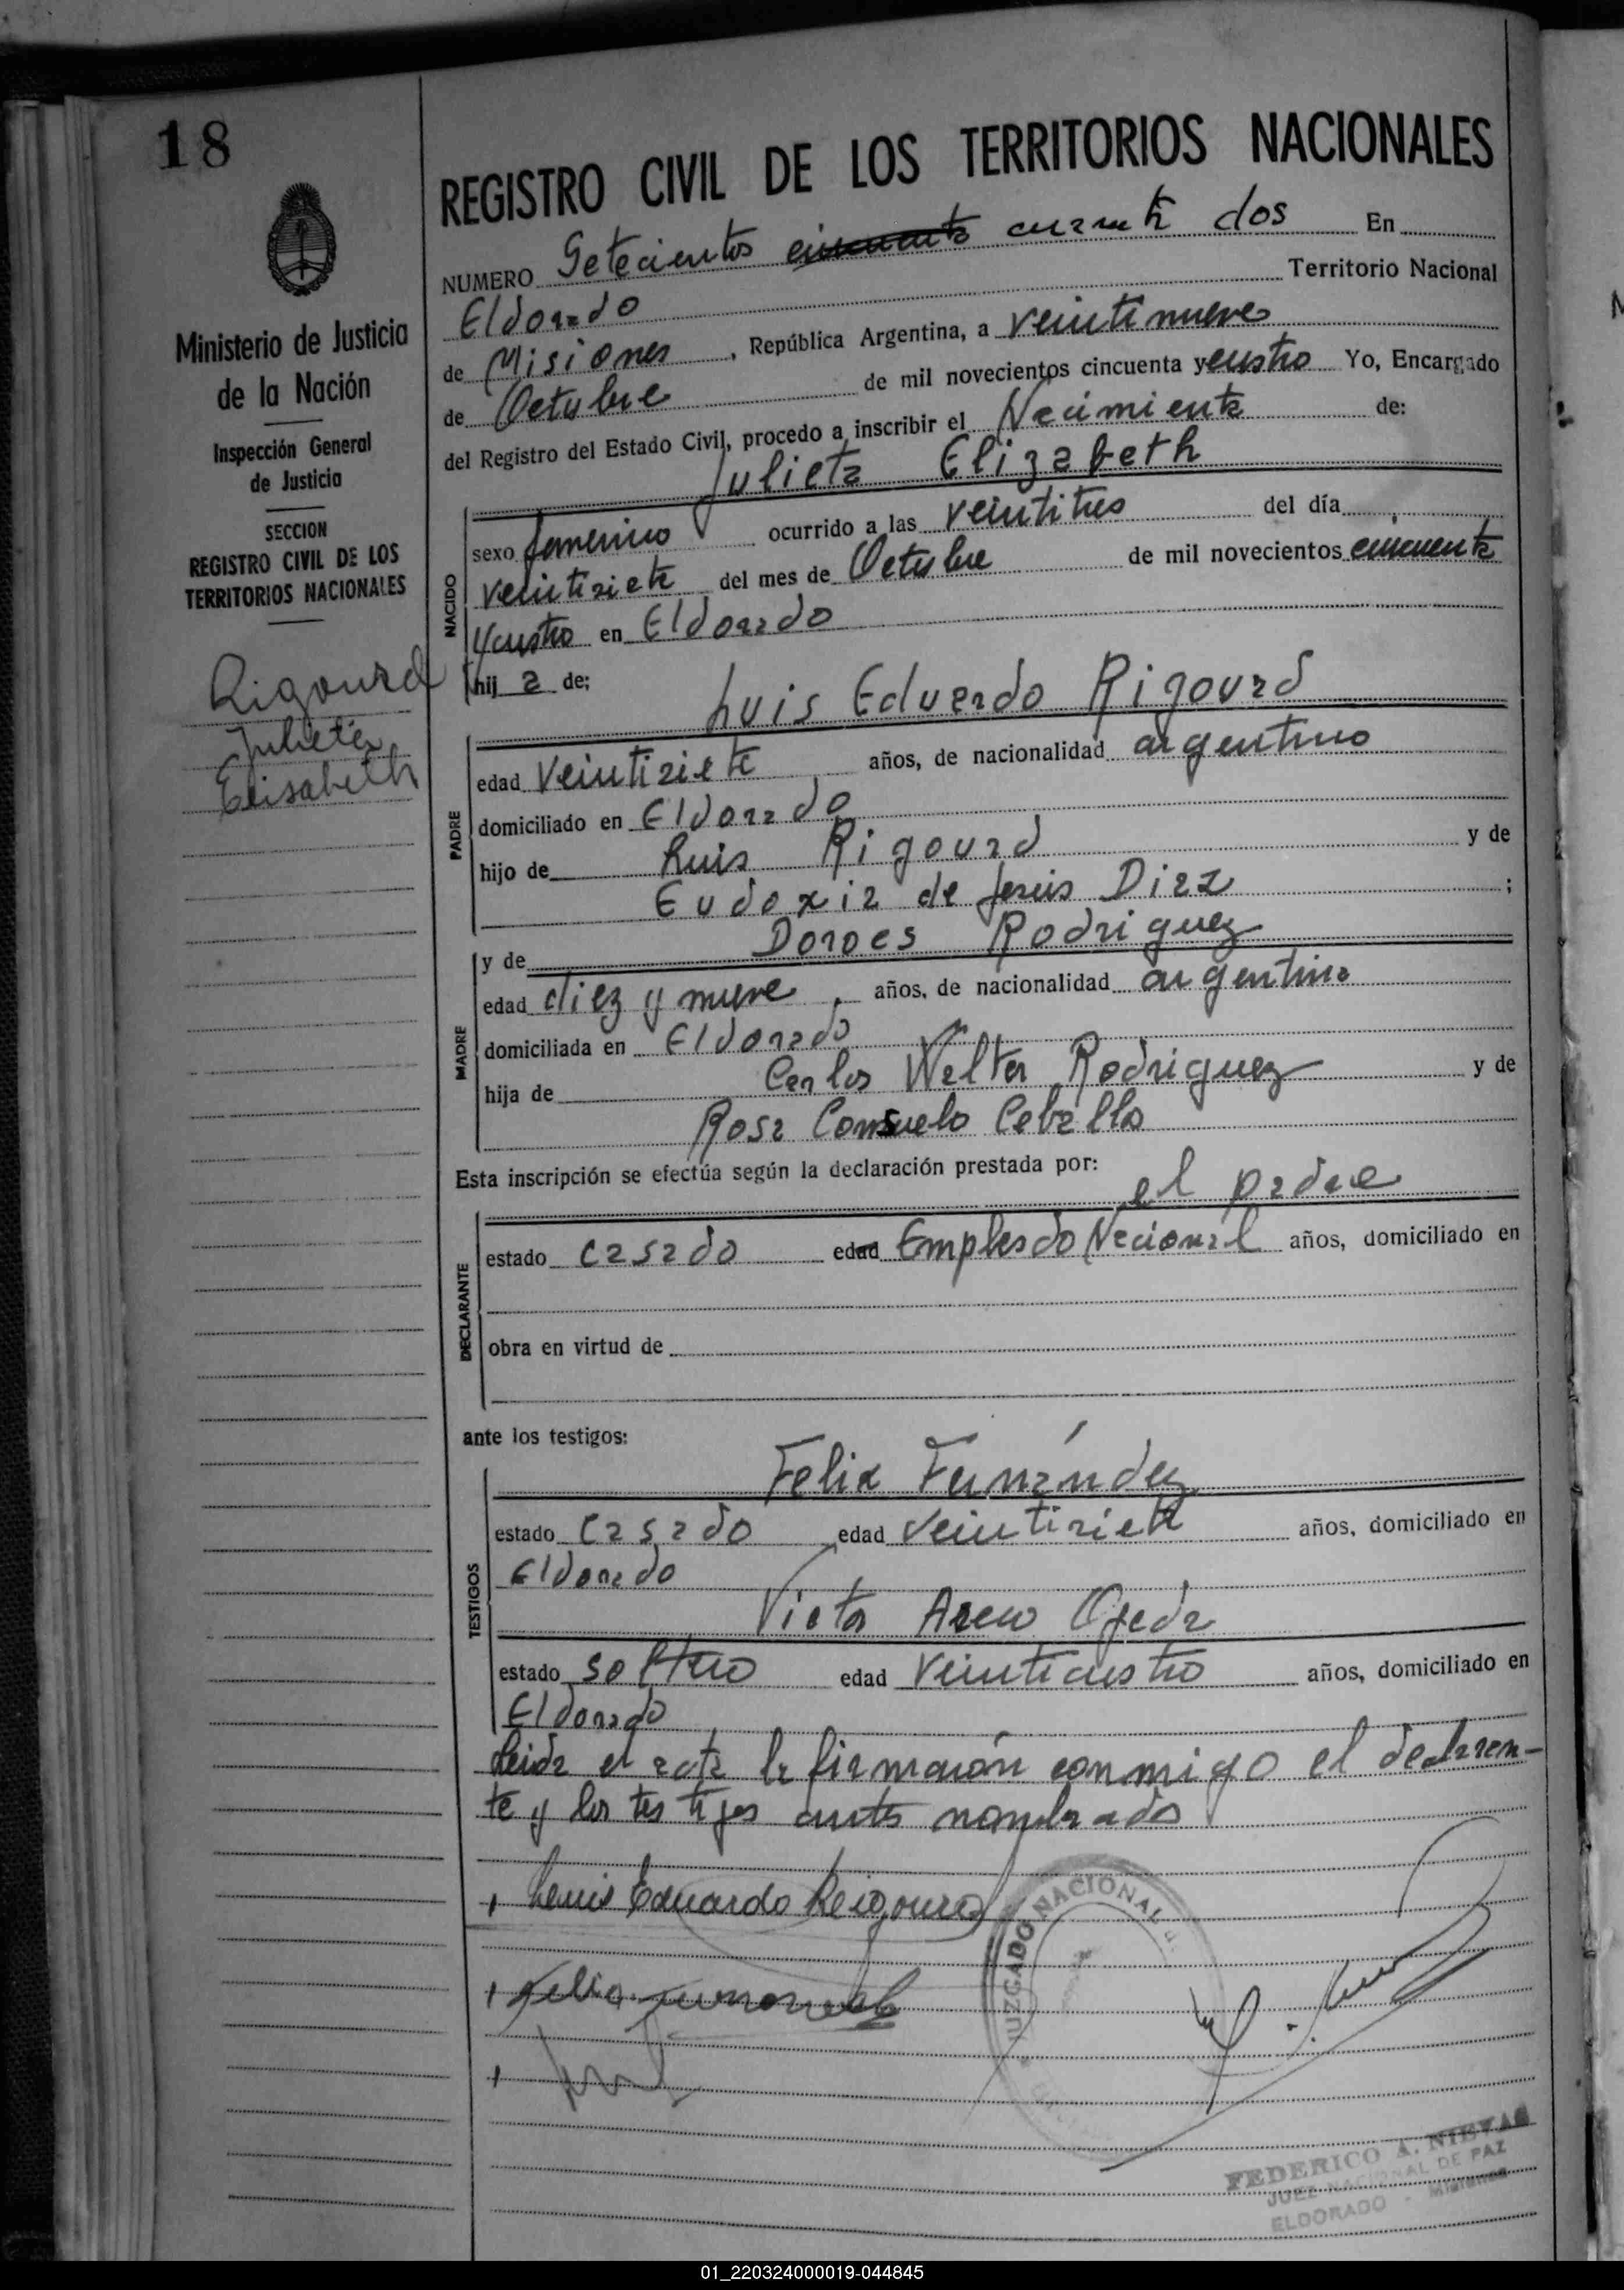 18
Ministerio de Justicia
de la Nación
Inspección General
de Justicia
SECCION
REGISTRO CIVIL DE LOS
TERRITORIOS NACIONALES
Rigourd
Julieta
Elisabeth
REGISTRO CIVIL DE LOS TERRITORIOS NACIONALES
NUMERO Setecientos cincuenta cuarenta dos En
Eldorado Territorio Nacional
de Misiones, República Argentina, a veintinueve
de Octubre de mil novecientos cincuenta y cuatro Yo, Encargado
del Registro del Estado Civil, procedo a inscribir el Nacimiento de:
Julieta Elizabeth
NACIDO
sexo femenino ocurrido a las veintitres del día
veintisiete del mes de Octubre de mil novecientos cincuenta
y cuatro en Eldorado
hij a de:
Luis Eduardo Rigourd
PADRE
edad veintisiete años, de nacionalidad argentino
domiciliado en Eldorado
hijo de Luis Rigourd y de
Eudoxia de Jesús Diaz ;
MADRE
y de Rodriguez
edad diez y nueve, años, de nacionalidad argentina
domiciliada en Eldorado
hija de Carlos Walter Rodriguez y de
Rosa Consuelo Ceballo
Esta inscripción se efectúa según la declaración prestada por:
el padre
DECLARANTE
estado casado edad Empleado Nacional años, domiciliado en
obra en virtud de
ante los testigos:
TESTIGOS
Felix Fernández
estado casado edad veintisiete años, domiciliado en
Eldorado
Victor Ojeda
estado soltero edad veinticuatro años, domiciliado en
Eldorado
Leida el acta la firmaron conmigo el declaran-
te y los testigos antes nombrados
Luis Eduardo Rigourd
JUZGADO NACIONAL
FEDERICO A. NIEVAS
JUEZ NACIONAL DE PAZ
ELDORADO - Misiones
01_220324000019-044845